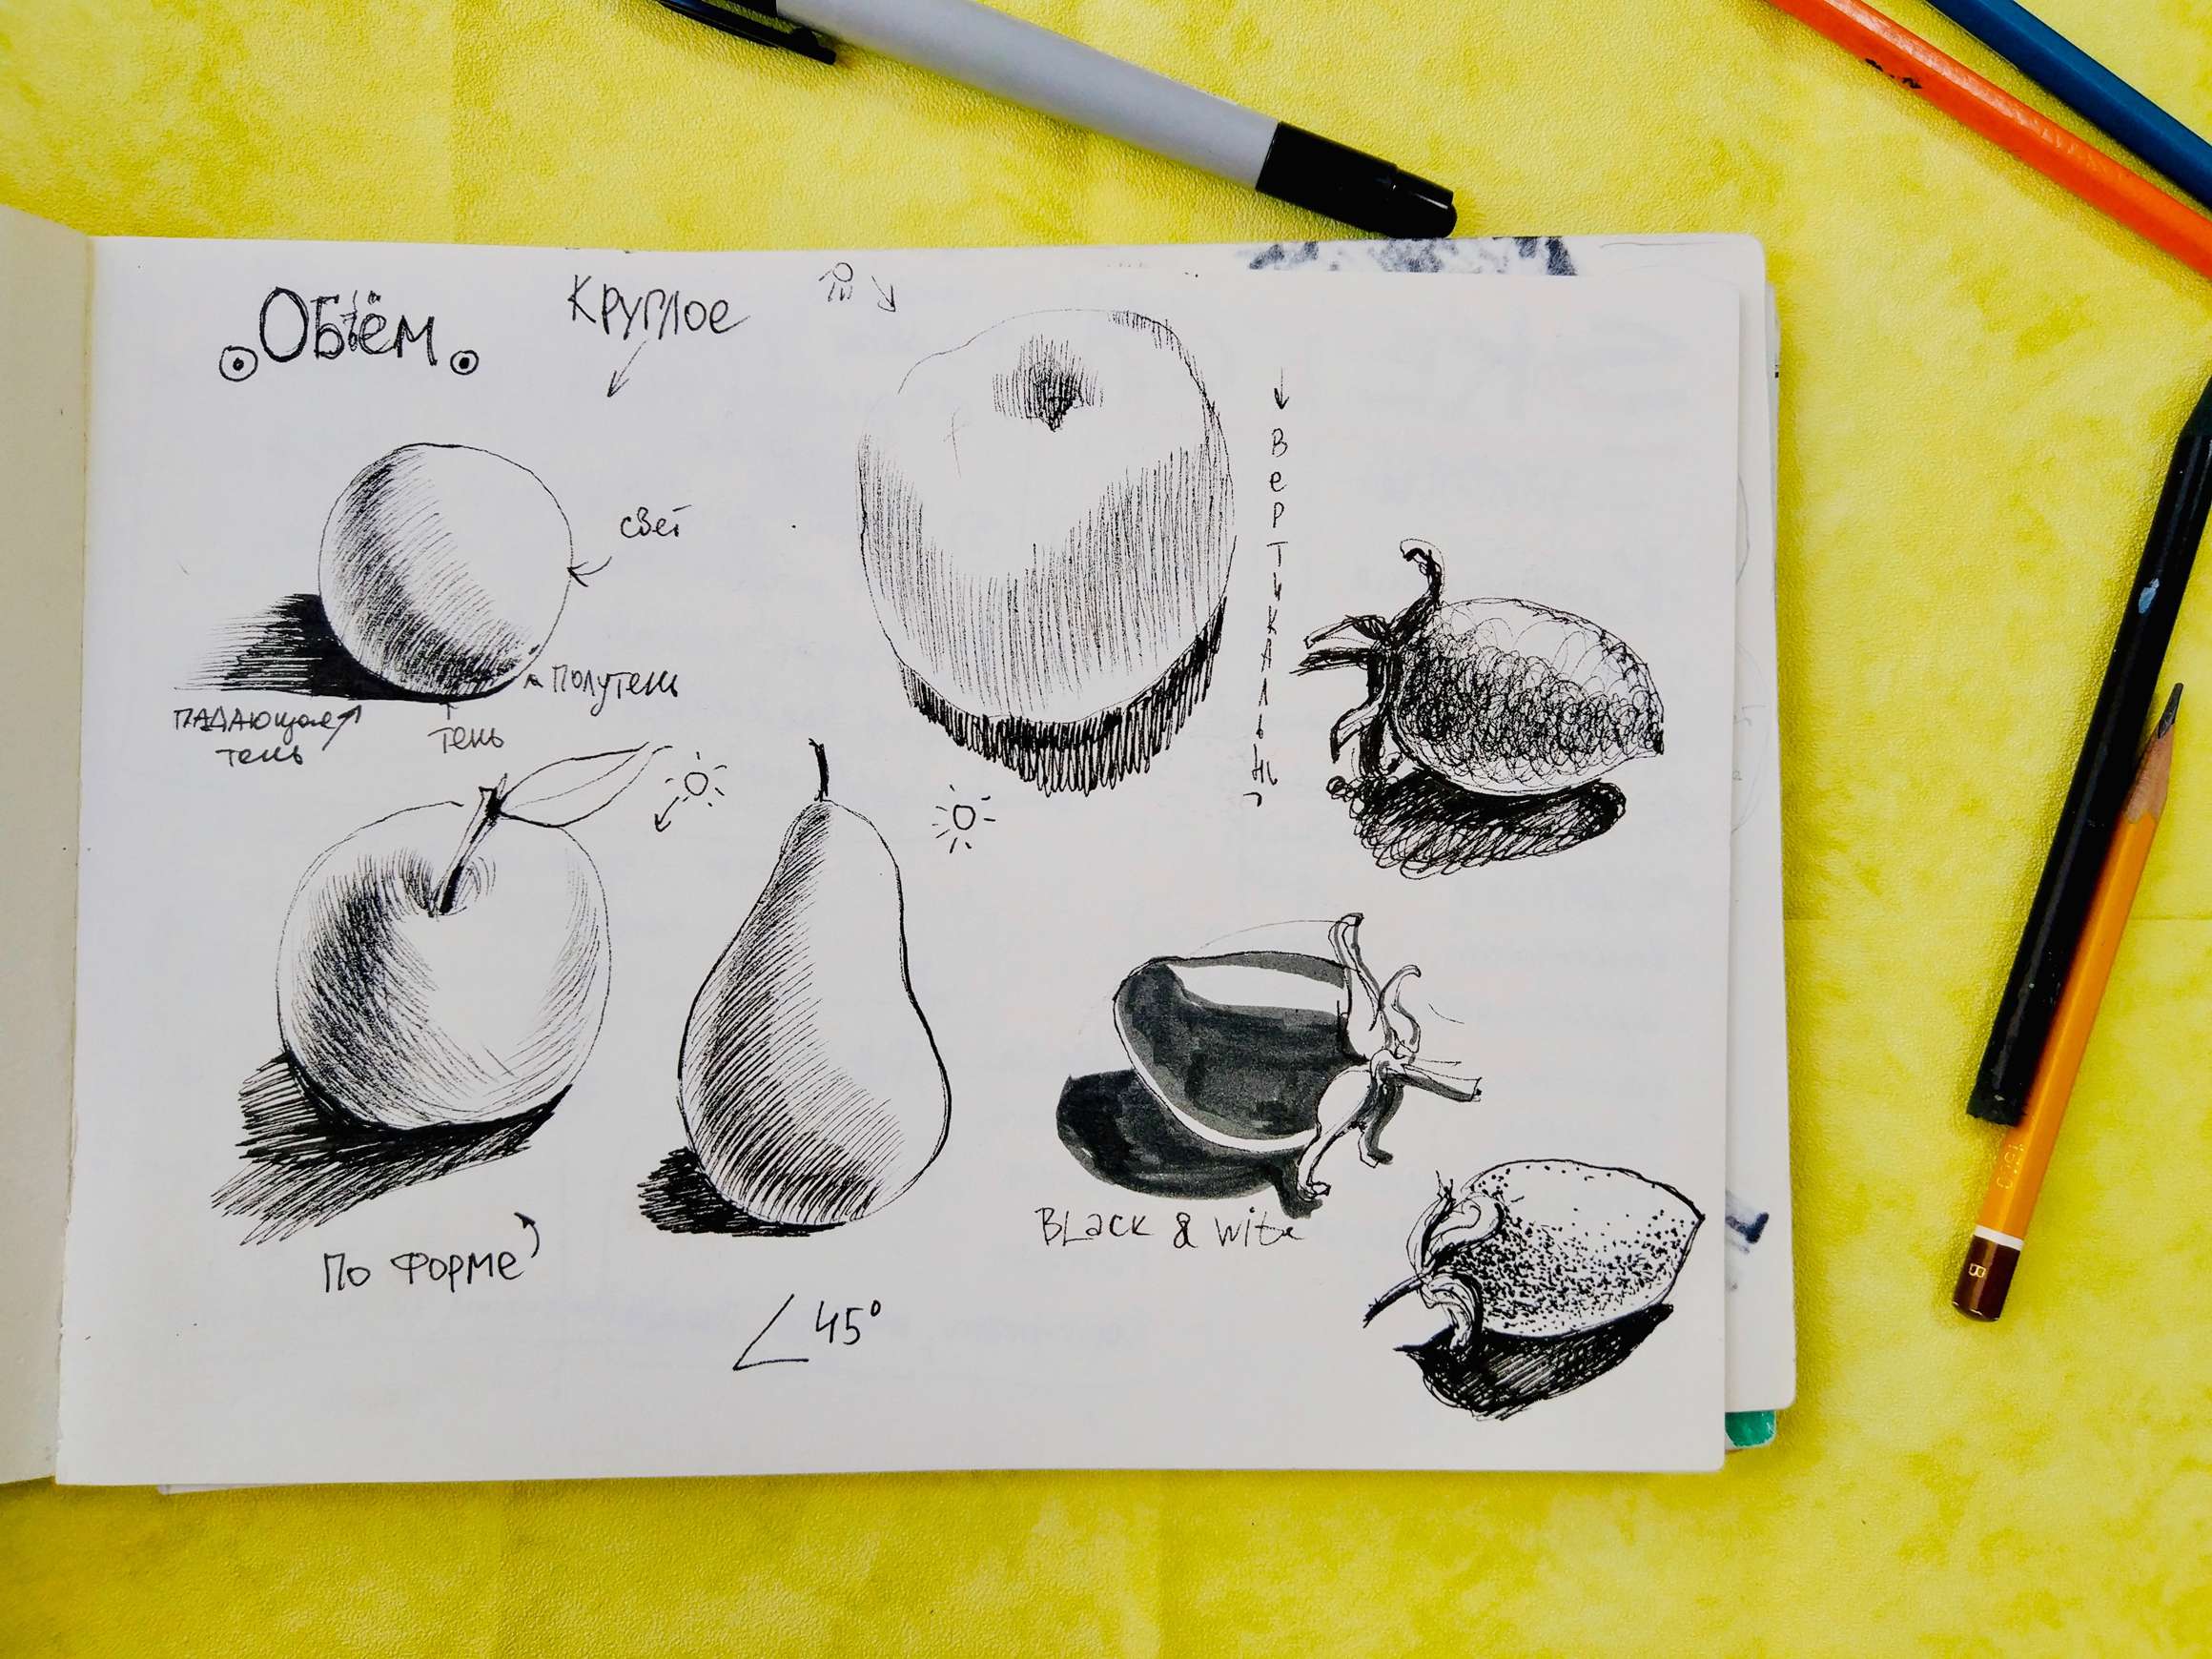 Объём
Круглое
свет
полутень
падающая
тень
тень
Вертикаль
По форме
45°
Black & wite
B